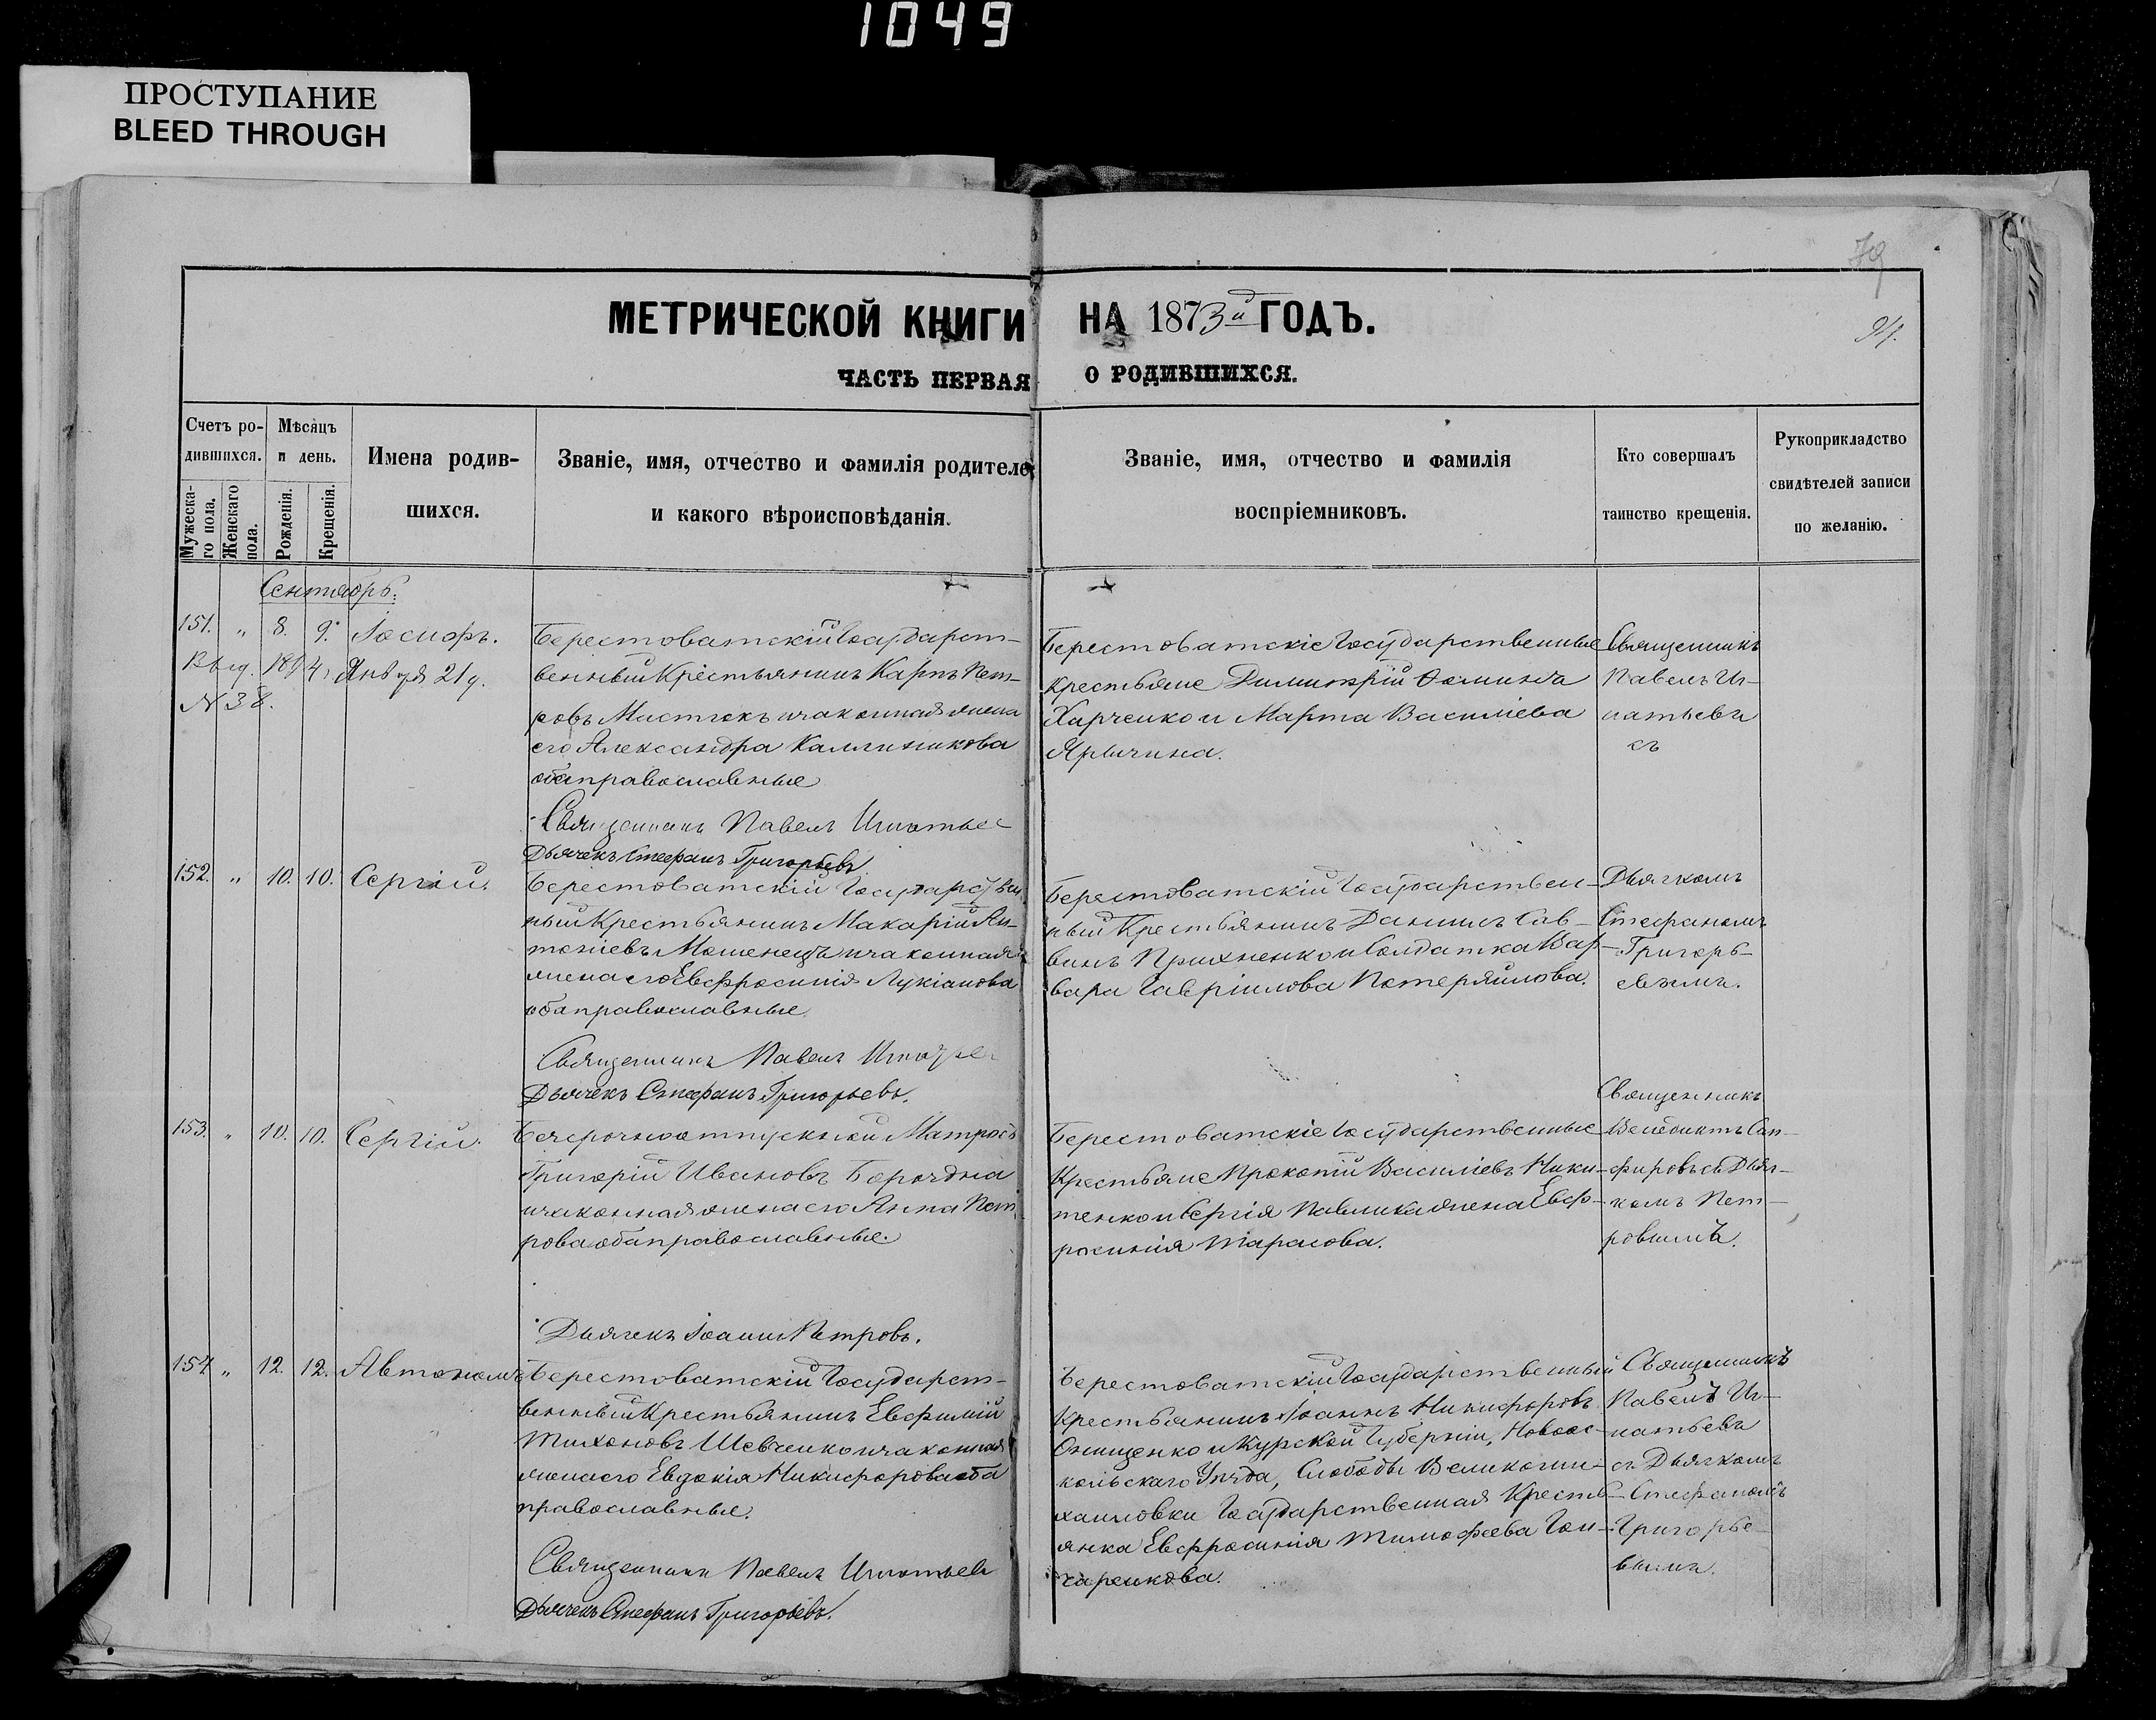 1049
ПРОСТУПАНИЕ
BLEED THROUGH
79
МЕТРИЧЕСКОЙ КНИГИ НА 1873й ГОДЪ.
ЧАСТЬ ПЕРВАЯ О РОДИВШИХСЯ.
Счетъ ро-
дившихся.
Мужеска-
го пола.
Женскаго
пола.
Мѣсяцъ
и день.
Рожденія.
Крещенія.
Имена родив-
шихся.
Званіе, имя, отчество и фамилія родителе
и какого вѣроисповѣданія.
Званіе, имя, отчество и фамилія
воспріемниковъ.
Кто совершалъ
таинство крещенія.
Рукоприкладство
свидѣтелей записи
по желанію.
Сентябрь.
151. " 8. 9. Іосифъ.
Выд. 1894, Января 21 д.
N 38.
Берестоватскій Государст-
венный Крестьянинъ Карпъ Пет-
ровъ и законная жена
его Александра Каллиникова
оба православные
Священникъ Павелъ Игнатьев
Дьячекъ Стефанъ Григорьевъ.
Берестоватскіе Государственные
Крестьяне Димитрій Ѳомичъ
Харченко и Марта Василіева
Яричина.
Священникъ
Павелъ Иг-
натьевъ
съ
152. " 10. 10. Сергій.
Берестоватскій Государствен
ный Крестьянинъ Макарій Ан-
тоніевъ Мошенецъ и законная
жена его Евфросинія Лукіанова
оба православные.
Священникъ Павелъ Игнатьев
Дьячекъ Стефанъ Григорьевъ.
Берестоватскій Государствен-
ный Крестьянинъ Даніилъ Сав-
винъ Прихненко и Солдатка Вар-
вара Гавріилова Потеряйлова.
Дьячкомъ
Стефаномъ
Григорь-
евымъ.
153. " 10. 10. Сергій.
Безсрочноотпускный Матросъ
Григорій Ивановъ Бородна
и законная жена его Анна Пет-
рова оба православные.
Дьячекъ Іоаннъ Петровъ.
Берестоватскіе Государственные
Крестьяне Прокопій Василіевъ Ники-
тенко и Сергія Павлика жена Евф-
росинія Тарасова.
Священникъ
Венедиктъ Сап-
фировъ съ Дьяч-
комъ Пет-
ровымъ.
154. " 12. 12. Автономъ
Берестоватскій Государст-
венный Крестьянинъ Евфимій
Тихоновъ Шевченко и законная
жена его Евдокія Никифорова оба
православные.
Священникъ Павелъ Игнатьевъ
Дьячекъ Стефанъ Григорьевъ.
Берестоватскій Государственный
Крестьянинъ Іоаннъ Никифоровъ
Онищенко и Курской Губерніи, Новоос-
кольскаго Уѣзда, Слободы Великоми-
хайловки Государственная Кресть-
янка Евфросинія Тимофеева Гон-
чаренкова.
Священникъ
Павелъ Иг-
натьевъ
съ Дьячкомъ
Стефаномъ
Григорье-
вымъ.